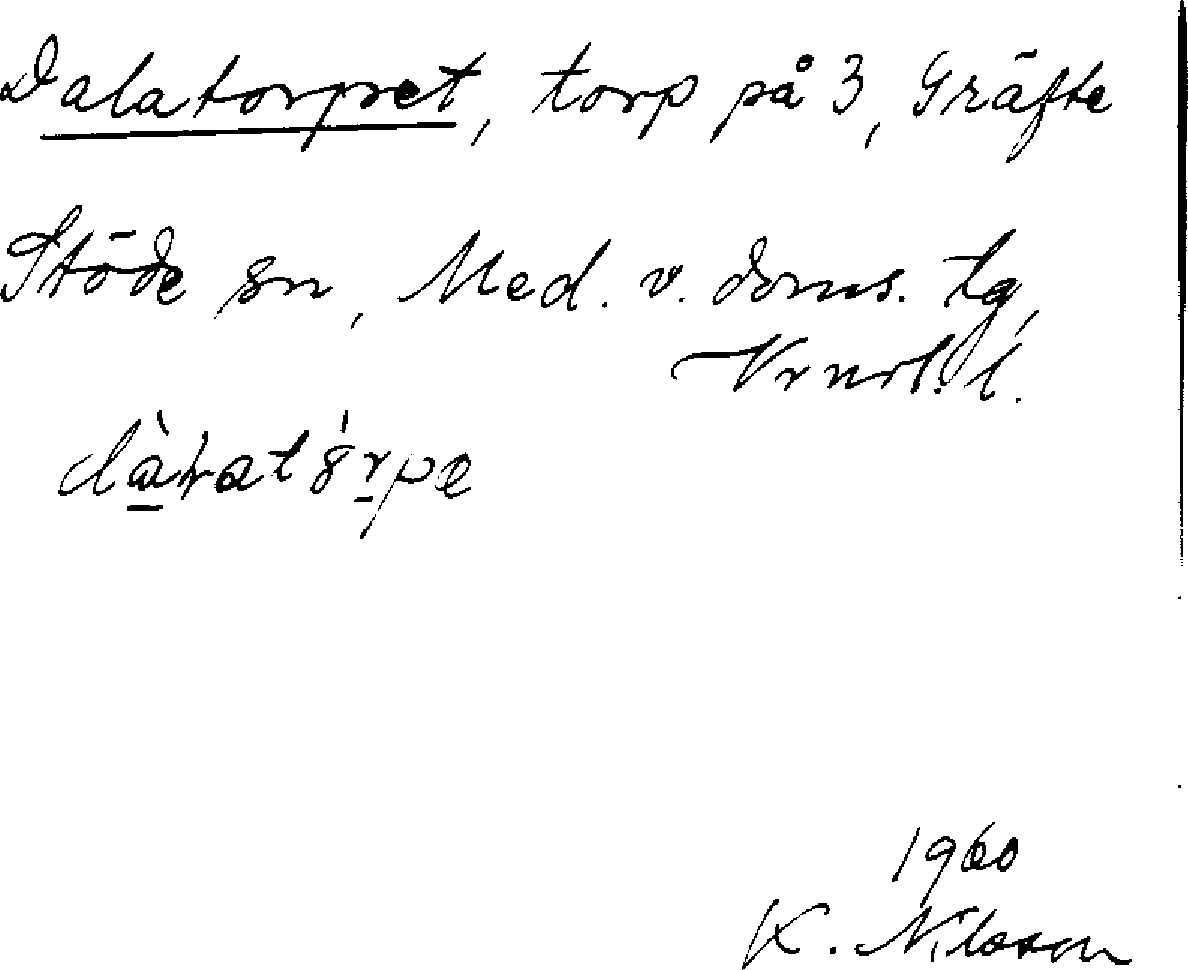 Dalatorpet, torp på 3, Gräfte
Stöde sn, Med. v. doms. tg,
Vrnrl. l.
1960
K. Nilsson